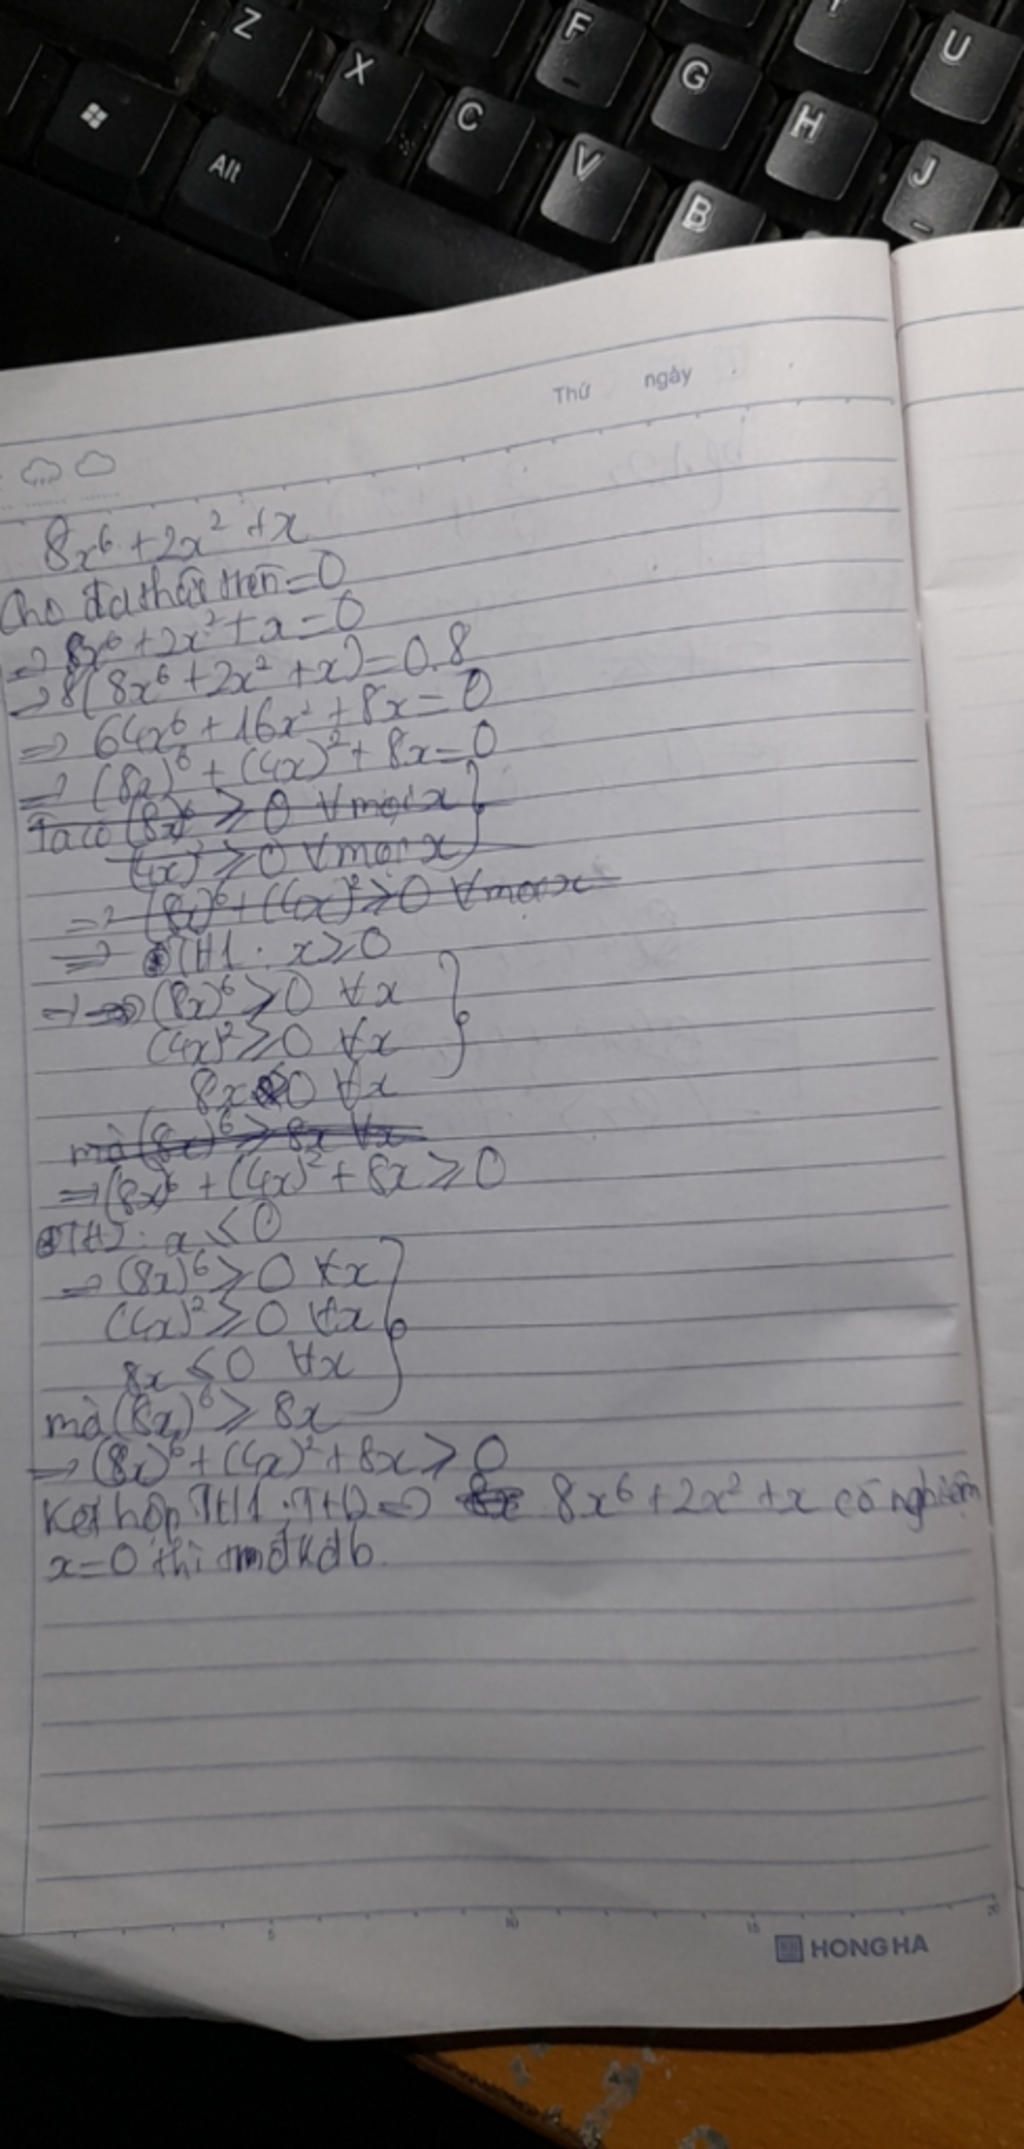 Z
X
C
F
G
U
Alt
V
H
J
B
Thứ ngày
8x⁶ + 2x² + x
Cho đa thức trên = 0
=> 8x⁶ + 2x² + x = 0
=> 8(8x⁶ + 2x² + x) = 0.8
=> 64x⁶ + 16x² + 8x = 0
=> (8x)⁶ + (4x)² + 8x = 0
Ta có (8x)⁶ ≥ 0 ∀ mọi x
(4x)² ≥ 0 ∀ mọi x
=> (8x)⁶ + (4x)² ≥ 0 ∀ mọi x
=> TH1: x ≥ 0
=> (8x)⁶ ≥ 0 ∀x
(4x)² ≥ 0 ∀x
8x 0 ∀x
mà (8x)⁶ ≥ 8x ∀x
=> (8x)⁶ + (4x)² + 8x ≥ 0
TH2: x ≤ 0
=> (8x)⁶ ≥ 0 ∀x
(4x)² ≥ 0 ∀x
8x ≤ 0 ∀x
mà (8x)⁶ ≥ 8x
=> (8x)⁶ + (4x)² + 8x ≥ 0
Kết hợp TH1, TH2 => 8x⁶ + 2x² + x có nghiệm
x = 0 thì
5 10 15 20
HONG HA